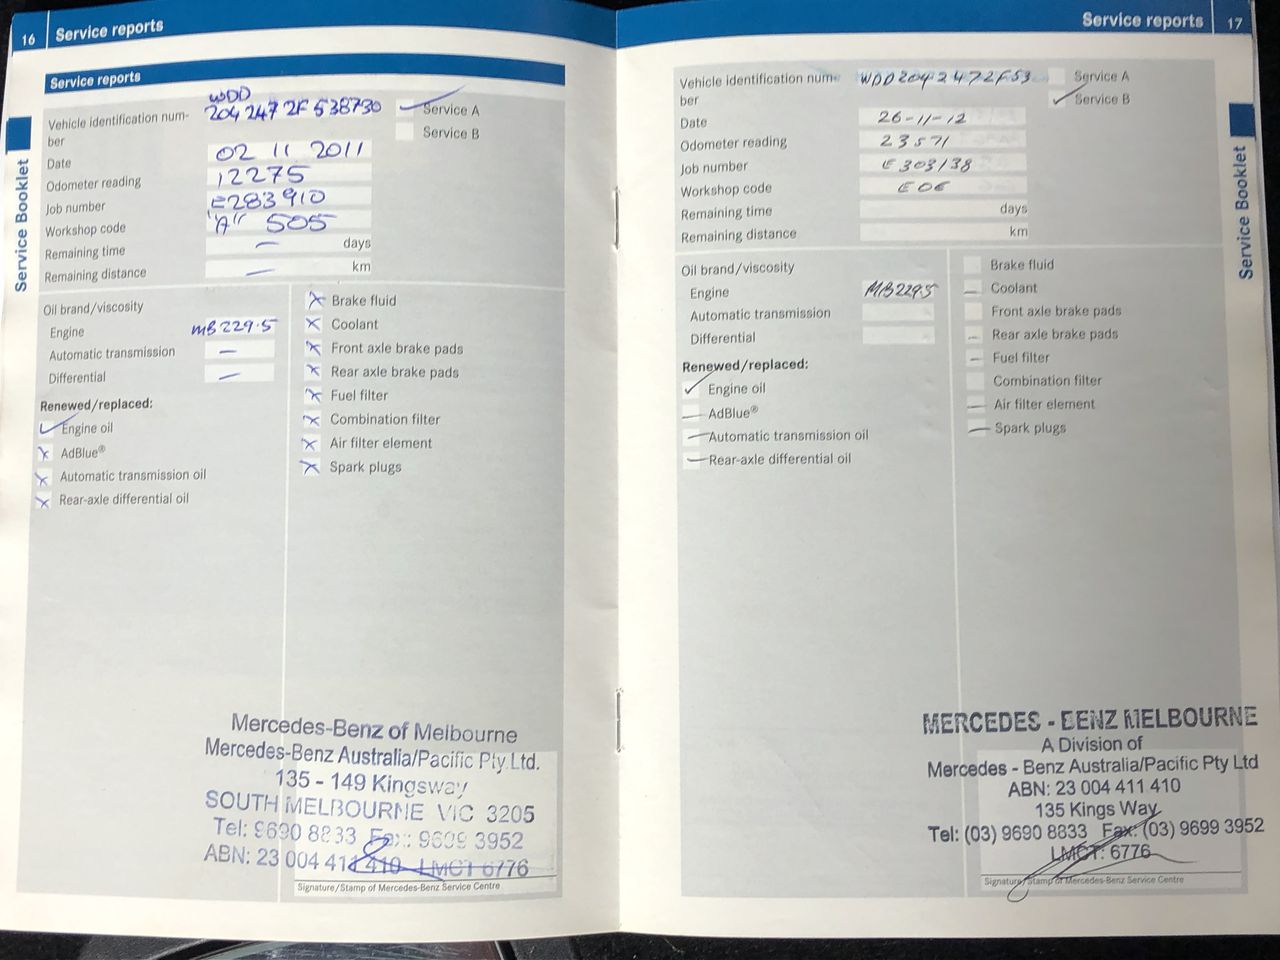 16 Service reports
Service reports
WDD
Vehicle identification num-
ber
204 247 2F 538730
Service A
Service B
Date 02 11 2011
Odometer reading 12275
Job number E283910
Workshop code "A" 505
Remaining time — days
Remaining distance — km
Oil brand/viscosity
Engine MB 229.5
Automatic transmission —
Differential —
Renewed/replaced:
Engine oil
AdBlue®
Automatic transmission oil
Rear-axle differential oil
Brake fluid
Coolant
Front axle brake pads
Rear axle brake pads
Fuel filter
Combination filter
Air filter element
Spark plugs
Mercedes-Benz of Melbourne
Mercedes-Benz Australia/Pacific Pty. Ltd.
135 - 149 Kingsway
SOUTH MELBOURNE VIC 3205
Tel: 9690 8833 Fax: 9699 3952
ABN: 23 004 411 410 LMCT 6776
Signature/Stamp of Mercedes-Benz Service Centre
Service Booklet
Service reports 17
Vehicle identification num-
ber
WDD2042472F53
Service A
Service B
Date 26-11-12
Odometer reading 23571
Job number E303138
Workshop code E06
Remaining time days
Remaining distance km
Oil brand/viscosity
Engine MB229.5
Automatic transmission
Differential
Renewed/replaced:
Engine oil
AdBlue®
Automatic transmission oil
Rear-axle differential oil
Brake fluid
Coolant
Front axle brake pads
Rear axle brake pads
Fuel filter
Combination filter
Air filter element
Spark plugs
MERCEDES - BENZ MELBOURNE
A Division of
Mercedes - Benz Australia/Pacific Pty Ltd
ABN: 23 004 411 410
135 Kings Way
Tel: (03) 9690 8833 Fax: (03) 9699 3952
LMCT: 6776
Signature/Stamp of Mercedes-Benz Service Centre
Service Booklet